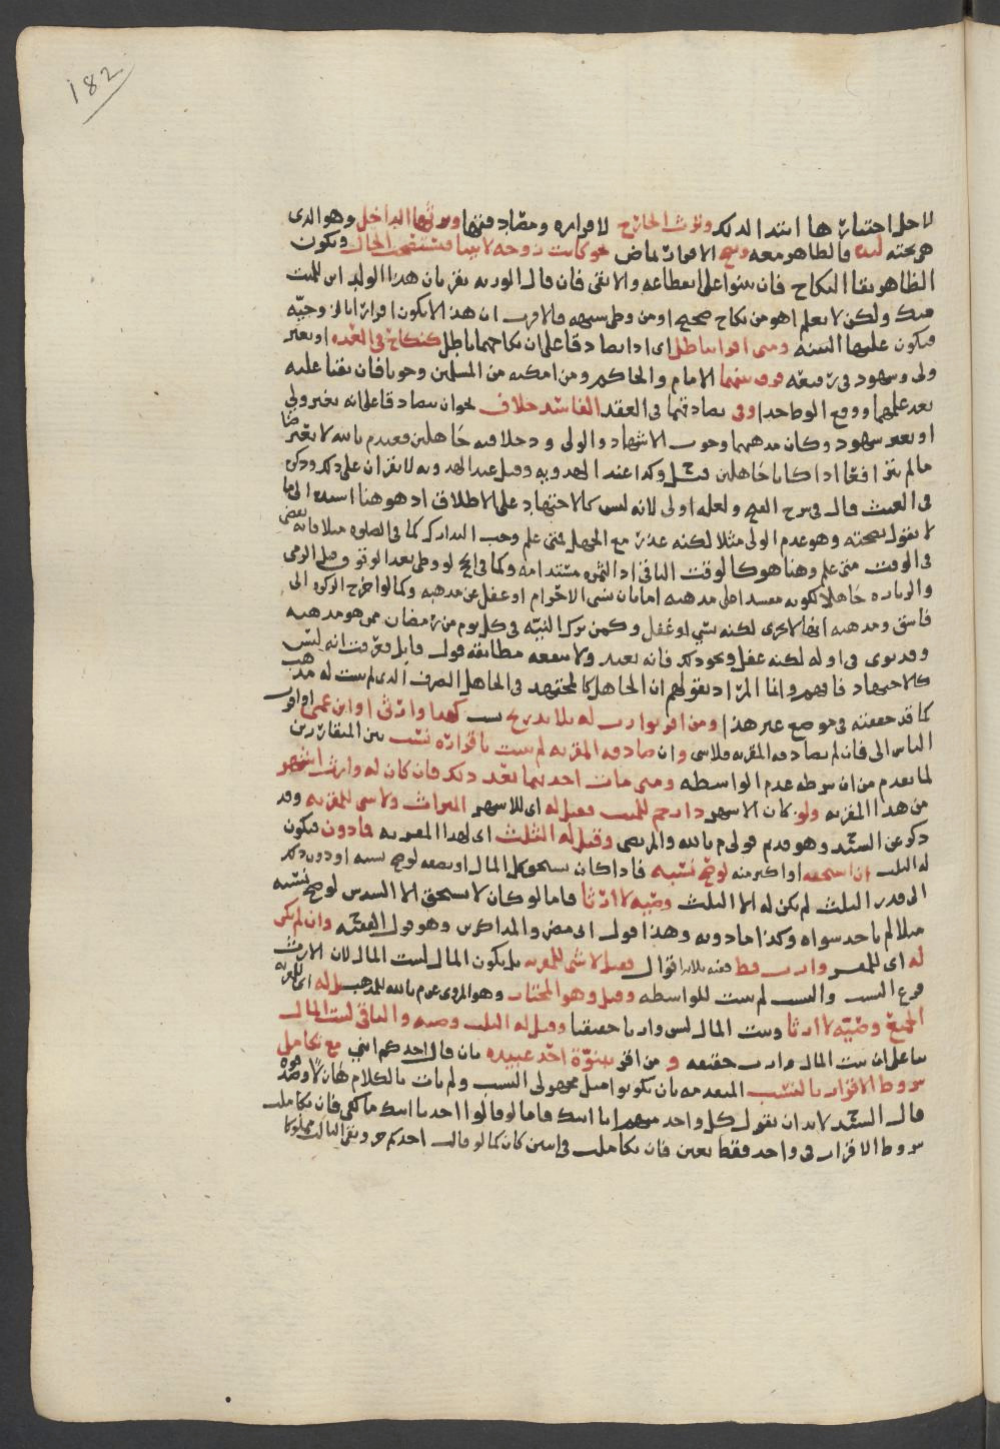 182
لاجل اختيارها ابتدا لذلك وترث الخارج لاقراره ومصادقتها ويرثها الداخل وهو الذى
هي تحته لانه فالظاهر معه ويصح الاقرار لماض نحو كانت زوجه لابيها فتستصحب الحال ويكون
الظاهر بقا النكاح فان بينوا على انقطاعه والا بقى فان قال الورثه نقر بان هذا الولد ابن للميت
منك ولكن لا نعلم اهو من نكاح صحيح او من وطى شبهه فالاقرب ان هذا لا يكون اقرارا بالزوجيه
فيكون عليها البينه ومتى اقرا بباطل اى اذا تصادقا على ان نكاحهما باطل كنكاح فى العده او بغير
ولى وشهود فى رفيعه فرق بينهما الامام والحاكم ومن امكنه من المسلمين وجوبا فان بقيا عليه
بعد علمهما ووقع الوطى حدا وفى تصادقهما فى العقد الفاسد خلاف نحو ان تصادقا على انه بغير ولى
او بغير شهود وكان مذهبهما وجوب الاشهاد والولى ودخلا فيه جاهلين فعند م بالله لا يعترضا
ما لم يترافعا اذا كانا جاهلين وكذا عند الهدويه وقيل عند الهدويه لا يقران على ذلك وذكره
فى الغيث قال فى شرح الفتح ولعله اولى لانه ليس كالاجتهاد على الاطلاق اذ هو هنا
لا يقول بصحته وهو عدم الولى مثلا لكنه عذر مع الجهل فمتى علم وجب التدارك كما فى الصلوه مثلا فانه يقضى
فى الوقت متى علم وهنا هو كالوقت الباقى اذ الثمره مستدامه وكما فى الحج لو وطى بعد الوقوف وقبل الرمى
والزياره جاهلا لكونه مفسدا على مذهبه اما بان نسى الاحرام او غفل عن مذهبه وكما لو اخرج الزكوه الى
فاسق ومذهبه انها لا تجزى لكنه نسى او غفل وكمن ترك النيه فى كل يوم من رمضان ممن هو مذهبه
وقد نوى فى اوله لكنه غفل ونحو ذلك فانه يعيد ولا ينفعه مطابقه قول قايل فعرفت انه ليس
كالاجتهاد فافهم وانما المراد بقولهم ان الجاهل كالمجتهد فى الجاهل الصرف الذى لم يثبت له مذهب
كما قد حققته فى موضع غير هذا ومن اقر بوارث له بلا تدريج نسب كهذا وارثى او ابن عمى او اقرب
الناس الى فان لم يصادقه المقر به فلا شى وان صادقه المقر به لم يثبت باقراره نسب بين المتقاررين
لما تقدم من ان شرطه عدم الواسطه ومتى مات احدهما بعد ذلك فان كان له وارث اشهر
من هذا المقر به ولو كان الاشهر ذا رحم للميت فقيل له اى للاشهر الميراث ولا شى للمقر به وقد
ذكر عن السيد وهو قديم قولى م بالله والمرتضى وقيل له الثلث اى لهذا المقر به فما دون فيكون
له الثلث ان استحقه او اكثر منه لو صح نسبه فاذا كان يستحق كل المال او نصفه لو صح نسبه او دون ذلك
الى قدر الثلث لم يكن له الا الثلث وصيه لا ارثا فاما لو كان لا يستحق الا السدس لو صح نسبه
مثلا لم ياخذ سواه وكذا ما دونه وهذا قول ابى مضر والمذاكرين وهو قول الفقيه وان لم يكن
له اى للمقر وارث قط ففيه ثلاثه اقوال فقيل لا شى للمقر به بل يكون المال لبيت المال لان الارث
فرع النسب والنسب لم يثبت للواسطه وقيل وهو المختار وهو المروى عن م بالله للمذهب بل له اى للمقر به
الجميع وصيه لا ارثا وبيت المال ليس وارثا حقيقيا وقيل له الثلث وصيه والباقى لبيت المال
بنا على ان بيت المال وارث حقيقه ومن اقر ببنوة احد عبيده بان قال احدكم ابنى مع تكامل
شروط الاقرار بالنسب المتقدمه بان يكونوا مثل مجهولى النسب ولم يات بالكلام هازلا وصدقوه
قال السيد لا بد ان يقول كل واحد منهم انا ابنك فاما لو قالوا احدنا ابنك ما كفى فان تكاملت
شروط الاقرار فى واحد فقط تعين فان تكاملت فى اثنين كان كما لو قال احدكم حر وبقى الثالث مملوكا